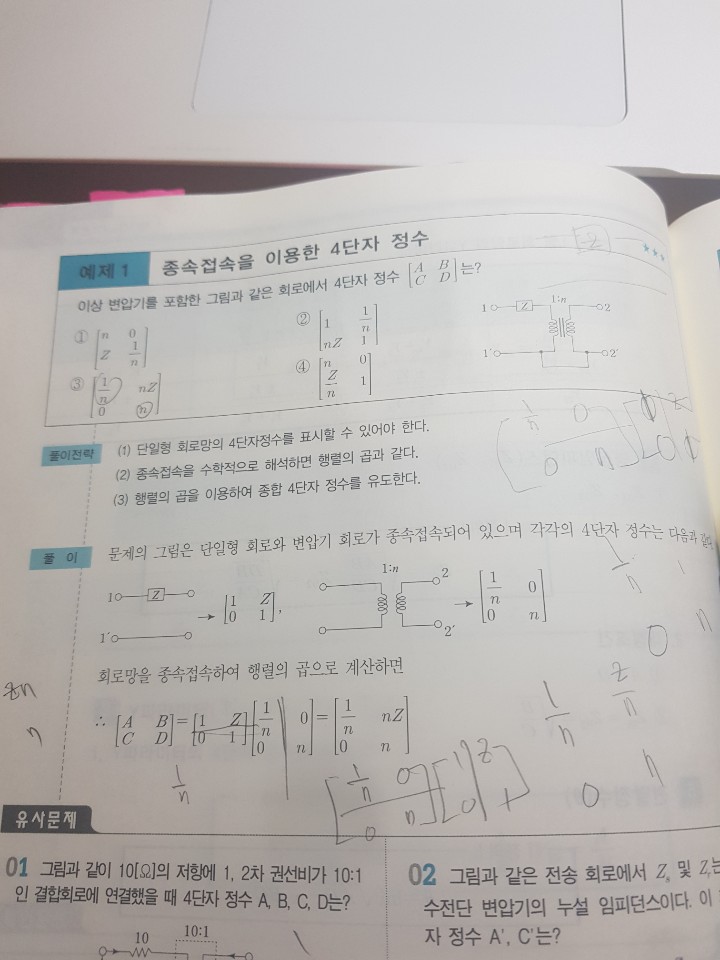 예제 1 종속접속을 이용한 4단자 정수
이상 변압기를 포함한 그림과 같은 회로에서 4단자 정수 [A B C D]는?
① [n 0 Z 1/n]
② [1 1/n nZ 1]
③ [1/n nZ 0 n]
④ [n 0 Z/n 1]
1 Z 1:n 2
1′ 2′
풀이전략 (1) 단일형 회로망의 4단자정수를 표시할 수 있어야 한다.
(2) 종속접속을 수학적으로 해석하면 행렬의 곱과 같다.
(3) 행렬의 곱을 이용하여 종합 4단자 정수를 유도한다.
[1/n 0 0 n] [1 Z 0 1]
풀 이 문제의 그림은 단일형 회로와 변압기 회로가 종속접속되어 있으며 각각의 4단자 정수는 다음과 같다
1 Z → [1 Z 0 1], 1:n 2 → [1/n 0 0 n]
1′ 2′
1/n
0 n
회로망을 종속접속하여 행렬의 곱으로 계산하면
zn
n
1/n z/n
0 n
∴ [A B C D]=[1 Z 0 1][1/n 0 0 n]=[1/n nZ 0 n]
1/n
[1/n 0 0 n] [1 Z 0 1]
유사문제
01 그림과 같이 10[Ω]의 저항에 1, 2차 권선비가 10:1
인 결합회로에 연결했을 때 4단자 정수 A, B, C, D는?
10 10:1
02 그림과 같은 전송 회로에서 Zₛ 및 Zᵣ는
수전단 변압기의 누설 임피던스이다. 이
자 정수 A′, C′는?